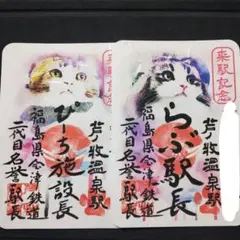 来駅記念
芦ノ牧温泉駅
らぶ駅長
福島県会津鉄道
二代目名誉駅長
芦ノ牧温泉駅
ぴーち施設長
福島県会津鉄道
二代目名誉駅長